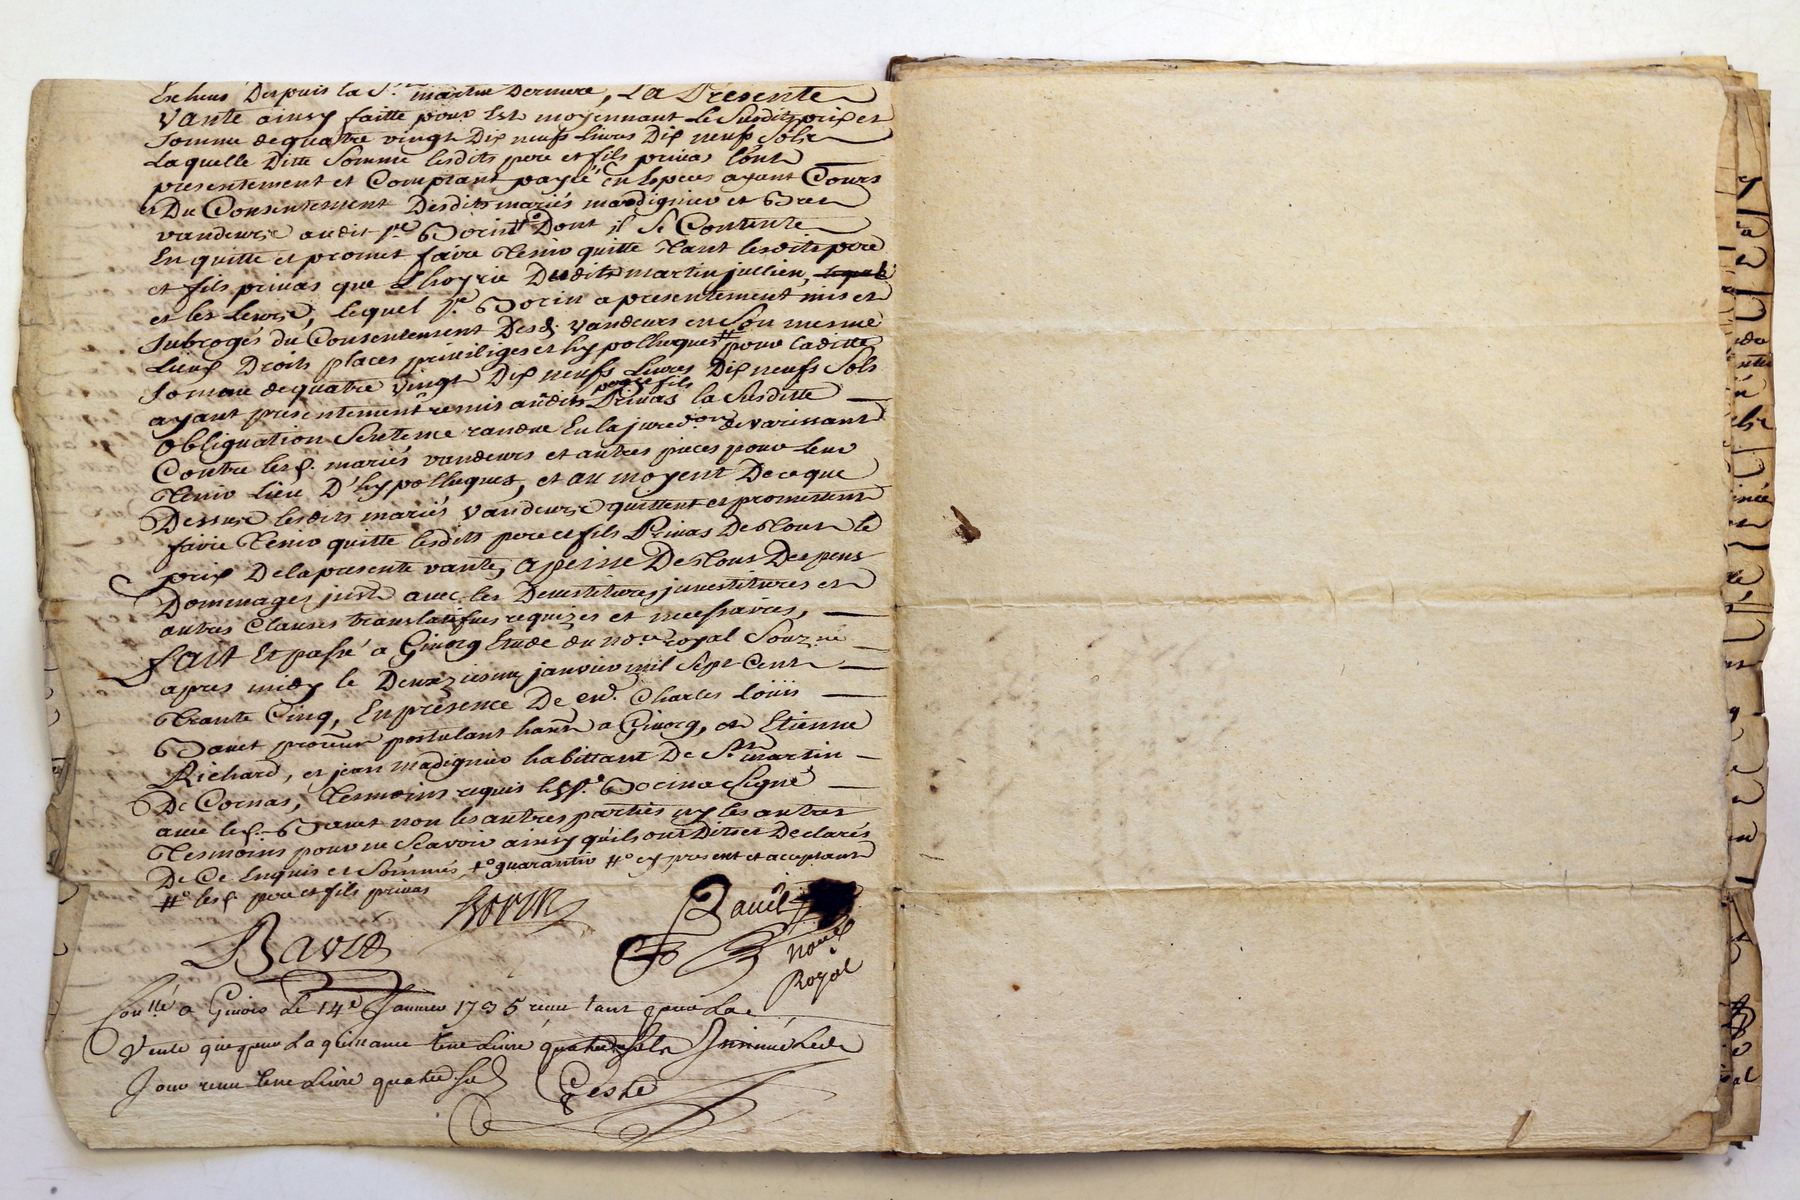 Escheus Despuis la St. martin Derniere, La Présente
vante ainsy faitte pour Et moyennant le Susdit prix et
somme de quatre vingt Dix neufs Livres Dix neufs Sols
Laquelle Ditte Somme lesdits pere et fils privas l'ont
presentement et Comptant payée en Especes ayant Cours
et Du Consentement Desdits mariés madignier et
vandeurs audit sr. Borin Dont il Se Contente
En quitte et promet faire Tenir quitte Tant lesdits pere
et fils privas que L'hoyrie Dudit martin jullien,
et les leurs, lequel sr. Borin a presentement mis et
subrogés du Consentement Desd. vandeurs en Son mesme
Lieux Droits places priviliges et hypotheques # pour Laditte
Somme de quatre vingt Dix neufs Livres Dix neufs Sols
ayant presentement remis audits pere et fils Privas la Susditte
obliguation Sentence randue En la juredon. de varissant
Contre lesd. mariés vandeurs et autres pieces pour leur
Tenir lieu D'hypotheques, et au moyent De ce que
Dessus lesdits mariés vandeurs quittent et promettent
faire Tenir quitte lesdits pere et fils Privas De Tout le
prix De la presente vante, a peine De Tous Despens
Dommages jnsts avec les Devestitures jnvestitures et
autres Clauses translatifves requizes et necessaires,
fait Et passé a Givorg Etude du nore. royal Souzné
apres midy le Deuxziesme janvier mil Sept Cent
Trante Cinq, En présence De md. Charles Loüis
Bavet procureur postulant hant a Givorg, et Etienne
Richard, et jean madignier habittant De St. martin
De Cornas, Tesmoins requis led. sr. Borin a Signé
avec led. Bavet non les autres parties ny les autres
Tesmoins pour ne Sçavoir ainsy qu'ils ont Dit et Declarés
De Ce Enquis et Sommés, +° guarantir #° cy present et acceptant
#° lesd. pere et fils privas
Borin
Bavet
nore
Royal
Conllé a Givors Le 14e Janvier 1735 receu tant pour La
Vente que pour La quittance Une Livre quatre sols Jnsinué Led.
Jour receu Une Livre quatre sols